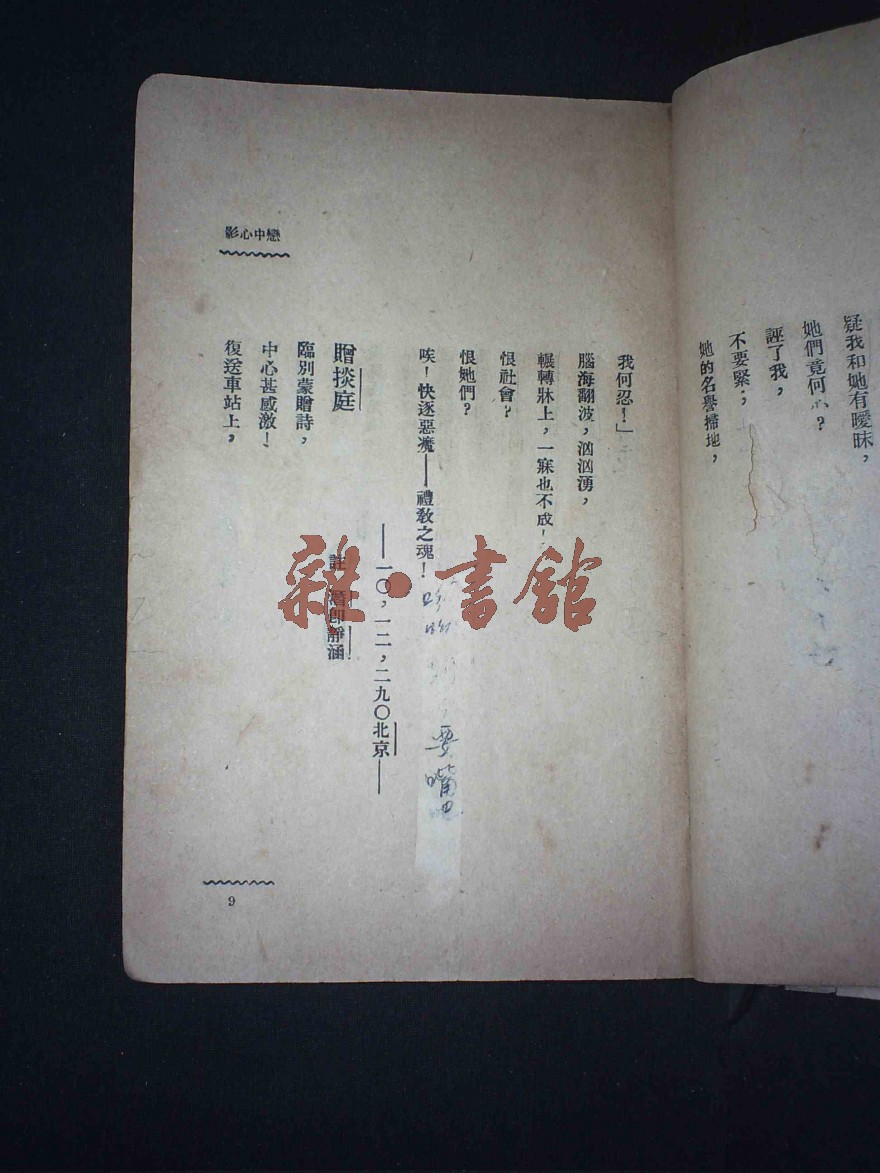 疑我和她有曖昧，
她們竟何心？
誣了我，
不要緊；
她的名譽掃地，
戀中心影
我何忍！」
腦海翻波，洶洶湧，
輾轉牀上，一寐也不成！
恨社會？
恨她們？
唉！快逐惡魔——禮敎之魂！
——一〇，一二，二九〇北京——
註 潛卽靜涵
贈掞庭
臨別蒙贈詩，
中心甚感激！
復送車站上，
9
要嘴
雜·書館